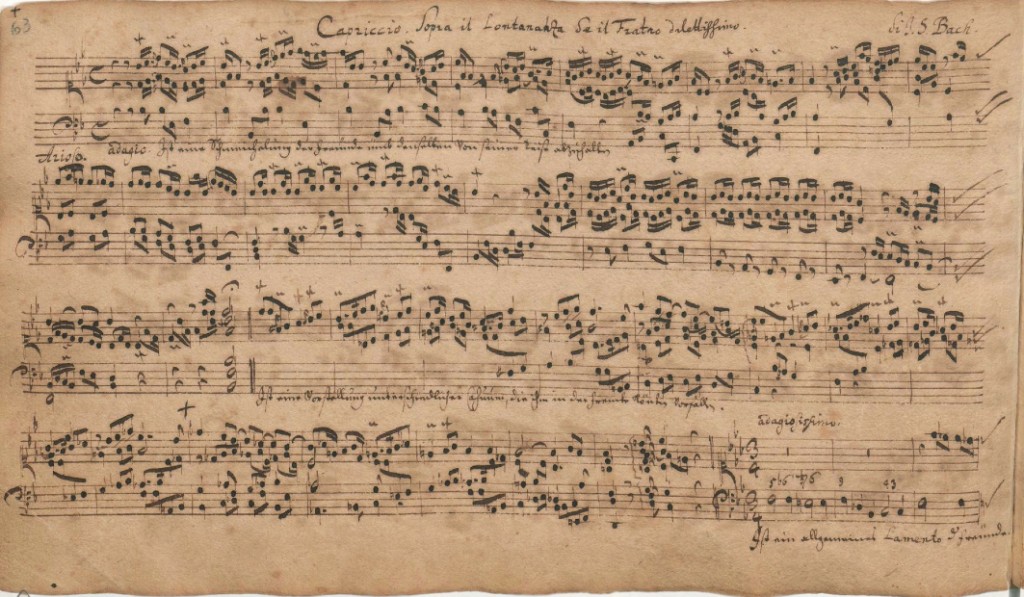 63
Capriccio. Sopra il Lontananza de il Fratro dilettissimo. di J. S. Bach.
Arioso. adagio. Ist eine Schmeichelung der Freunde um denselben von seiner Reise abzuhalten
Ist eine Vorstellung unterschiedlicher Casuum, die ihm in der Frembde könten vorfallen.
adagiosissimo.
5 b6 7b 5 8 43
Ist ein allgemeines Lamento d. Freunde